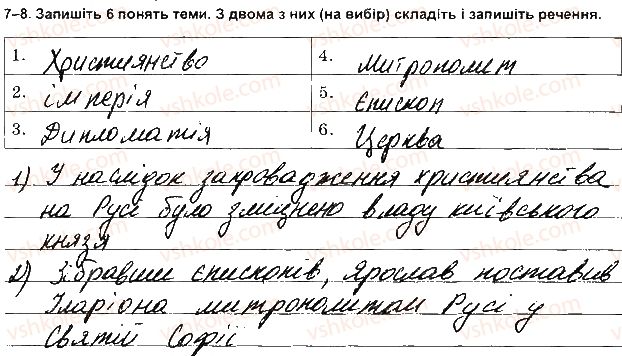 7–8. Запишіть 6 понять теми. З двома з них (на вибір) складіть і запишіть речення.
1. Християнство 4. Митрополит
2. імперія 5. Єпископ
3. Дипломатія 6. Церква
1) У наслідок запровадження християнства
на Русі було зміцнено владу київського
князя
2) Зібравши єпископів, Ярослав поставив
Іларіона митрополитом Русі у
Святій Софії